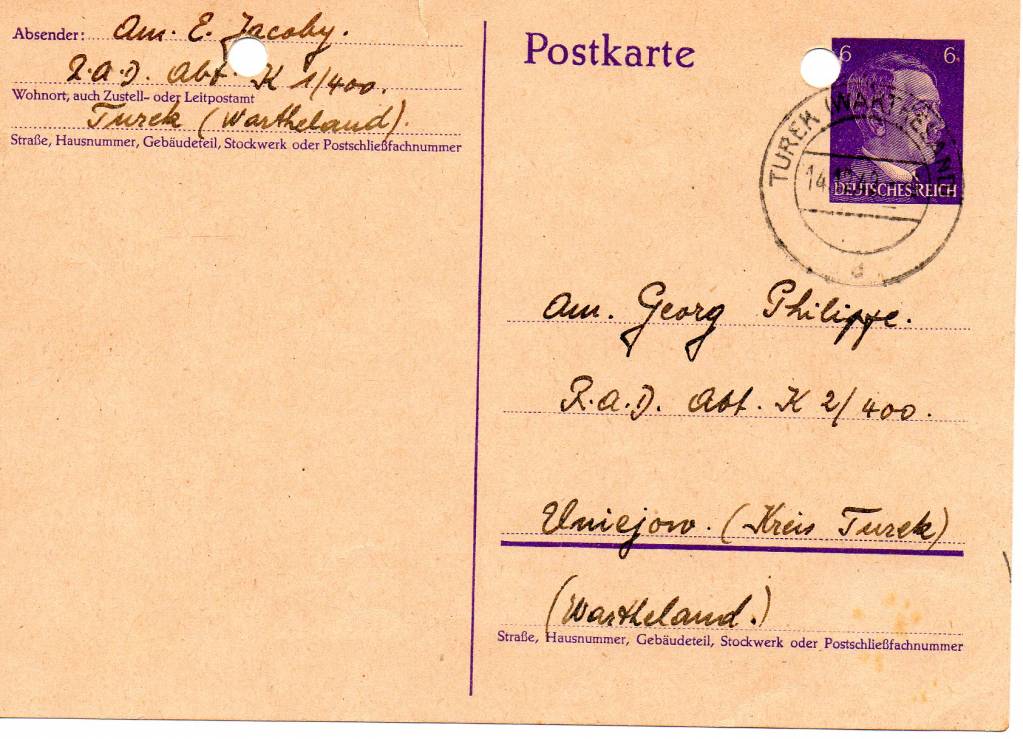 Absender: Am. E. Jacoby.
R.A.D. Abt. K 1/400.
Wohnort, auch Zustell- oder Leitpostamt
Turek (Wartheland).
Straße, Hausnummer, Gebäudeteil, Stockwerk oder Postschließfachnummer
Postkarte
6 6
TUREK (WARTHELAND)
DEUTSCHES REICH
d
Am. Georg Philippe.
R.A.D. Abt. K 2/400.
Uniejow. (Kreis Turek)
(Wartheland.)
Straße, Hausnummer, Gebäudeteil, Stockwerk oder Postschließfachnummer